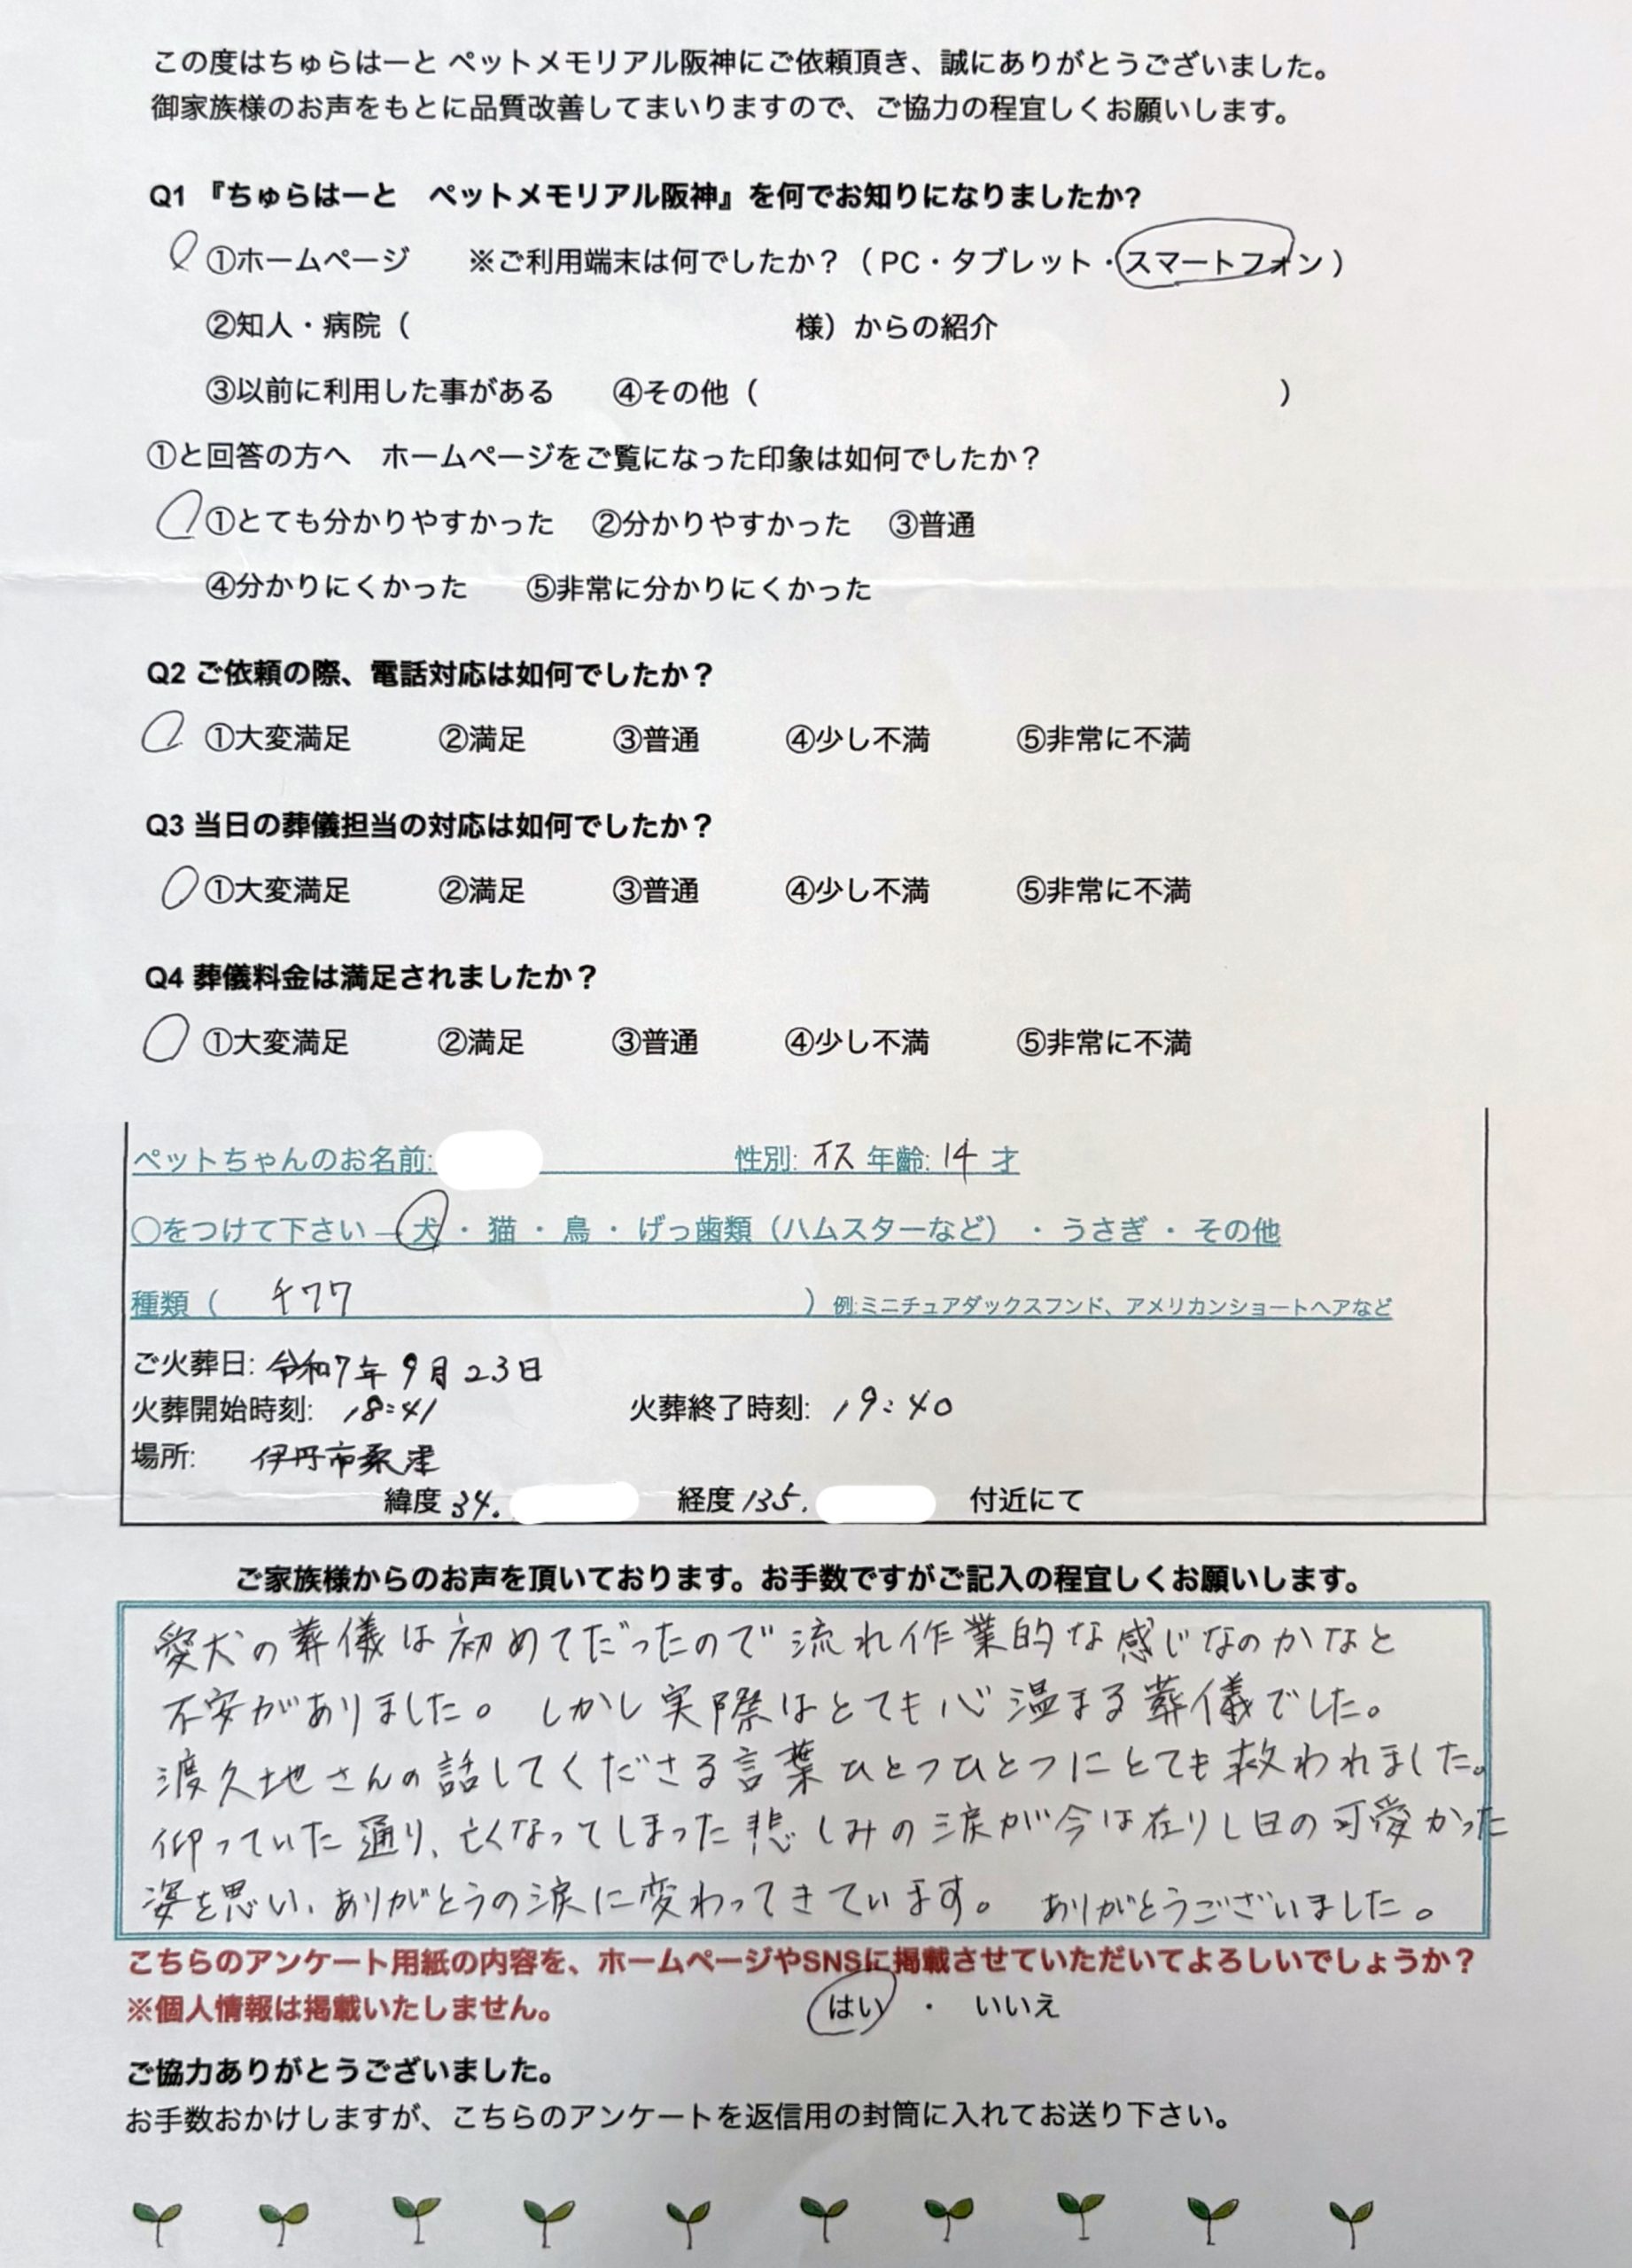 この度はちゅらはーと ペットメモリアル阪神にご依頼頂き、誠にありがとうございました。
御家族様のお声をもとに品質改善してまいりますので、ご協力の程宜しくお願いします。
Q1 『ちゅらはーと　ペットメモリアル阪神』を何でお知りになりましたか?
①ホームページ　　※ご利用端末は何でしたか？（PC・タブレット・スマートフォン）
②知人・病院（　　　　　　　　　　　　　様）からの紹介
③以前に利用した事がある　　④その他（　　　　　　　　　　　　　　　　　　）
①と回答の方へ　ホームページをご覧になった印象は如何でしたか？
①とても分かりやすかった　②分かりやすかった　③普通
④分かりにくかった　　⑤非常に分かりにくかった
Q2 ご依頼の際、電話対応は如何でしたか？
①大変満足　　　②満足　　　③普通　　　④少し不満　　　⑤非常に不満
Q3 当日の葬儀担当の対応は如何でしたか？
①大変満足　　　②満足　　　③普通　　　④少し不満　　　⑤非常に不満
Q4 葬儀料金は満足されましたか？
①大変満足　　　②満足　　　③普通　　　④少し不満　　　⑤非常に不満
ペットちゃんのお名前:　　　　　　　　　性別: オス 年齢: 14 才
○をつけて下さい→犬・猫・鳥・げっ歯類（ハムスターなど）・うさぎ・その他
種類（　チワワ　　　　　　　　　　　　　）例:ミニチュアダックスフンド、アメリカンショートヘアなど
ご火葬日: 令和7年9月23日
火葬開始時刻: 18:41　　　　　　火葬終了時刻: 19:40
場所:　伊丹市桑津
緯度 34.　　　　　経度 135.　　　　　付近にて
ご家族様からのお声を頂いております。お手数ですがご記入の程宜しくお願いします。
愛犬の葬儀は初めてだったので流れ作業的な感じなのかなと
不安がありました。しかし実際はとても心温まる葬儀でした。
渡久地さんの話してくださる言葉ひとつひとつにとても救われました。
仰っていた通り、亡くなってしまった悲しみの涙が今は在りし日の可愛かった
姿を思い、ありがとうの涙に変わってきています。ありがとうございました。
こちらのアンケート用紙の内容を、ホームページやSNSに掲載させていただいてよろしいでしょうか？
※個人情報は掲載いたしません。　　　　　　　　　はい　・　いいえ
ご協力ありがとうございました。
お手数おかけしますが、こちらのアンケートを返信用の封筒に入れてお送り下さい。